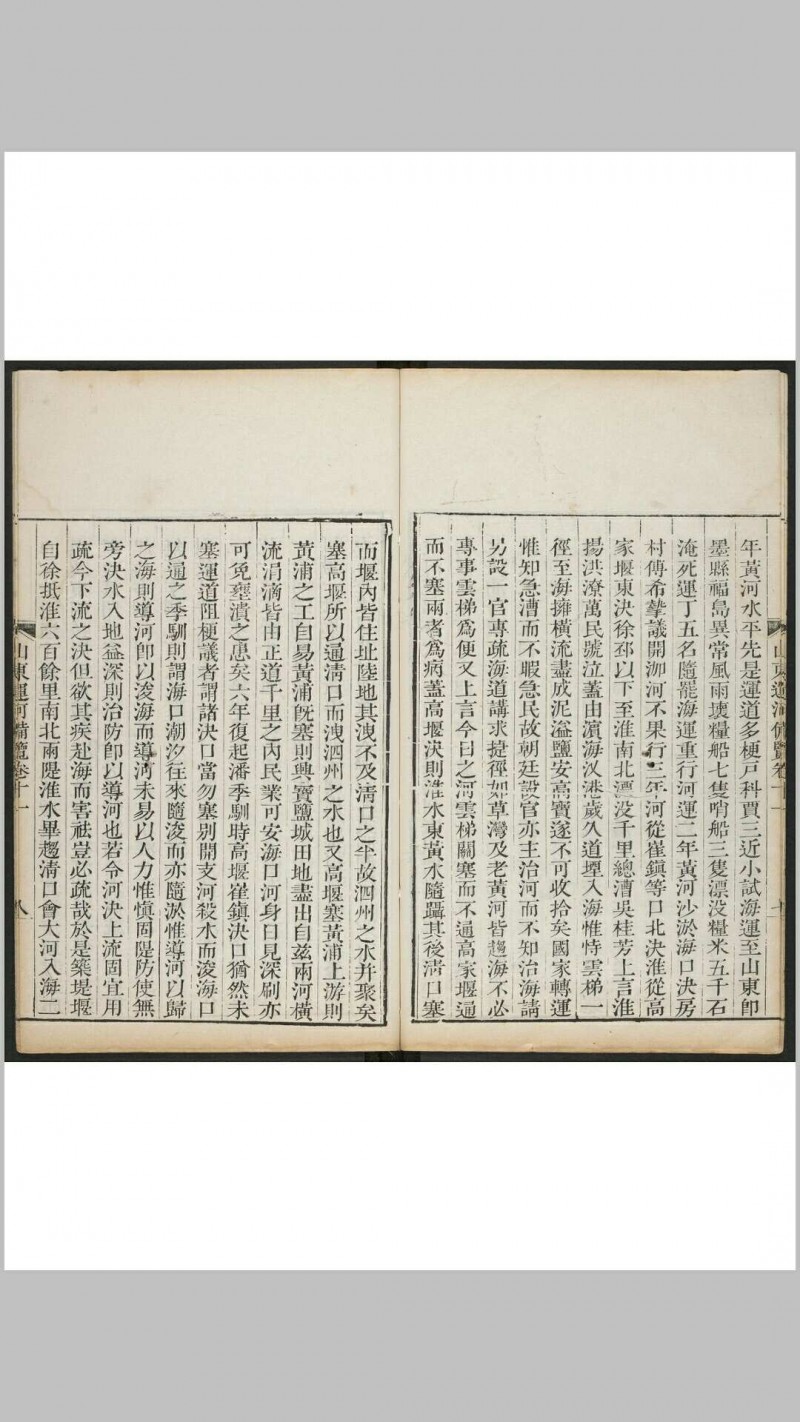 山東運河備覽卷十一
年黃河水平先是運道多梗戶科賈三近小試海運至山東卽
墨縣福島異常風雨壞糧船七隻哨船三隻漂沒糧米五千石
淹死運丁五名隨罷海運重行河運二年黃河沙淤海口決房
村傅希摯議開泇河不果行三年河從崔鎮等口北決淮從高
家堰東決徐邳以下至淮南北漂沒千里總漕吳桂芳上言淮
揚洪潦萬民號泣蓋由濱海汊港歲久道堙入海惟恃雲梯一
徑至海擁橫流盡成泥溢鹽安高寶遂不可收拾矣國家轉運
惟知急漕而不暇急民故朝廷設官亦主治河而不知治海請
另設一官專疏海道講求捷徑如草灣及老黃河皆趨海不必
專事雲梯爲便又上言今日之河雲梯關塞而不通高家堰通
而不塞兩者爲病蓋高堰決則淮水東黃水隨躡其後清口塞
而堰內皆住址陸地其洩不及清口之半故泗州之水幷聚矣
塞高堰所以通清口而洩泗州之水也又高堰塞黃浦上游則
黃浦之工自易黃浦旣塞則興寶鹽城田地盡出自茲兩河橫
流涓滴皆由正道千里之內民業可安海口河身日見深刷亦
可免壅潰之患矣六年復起潘季馴時高堰崔鎮決口猶然未
塞運道阻梗議者謂諸決口當勿塞別開支河殺水而浚海口
以通之季馴則謂海口潮汐往來隨浚而亦隨淤惟導河以歸
之海則導河卽以浚海而導河未易以人力惟愼固隄防使無
旁決水入地益深則治防卽以導河也若令河決上流固宜用
疏今下流之決但欲其疾赴海而害祛豈必疏哉於是築堤堰
自徐抵淮六百餘里南北兩隄淮水畢趨清口會大河入海二
山東運河備覽卷十一
八